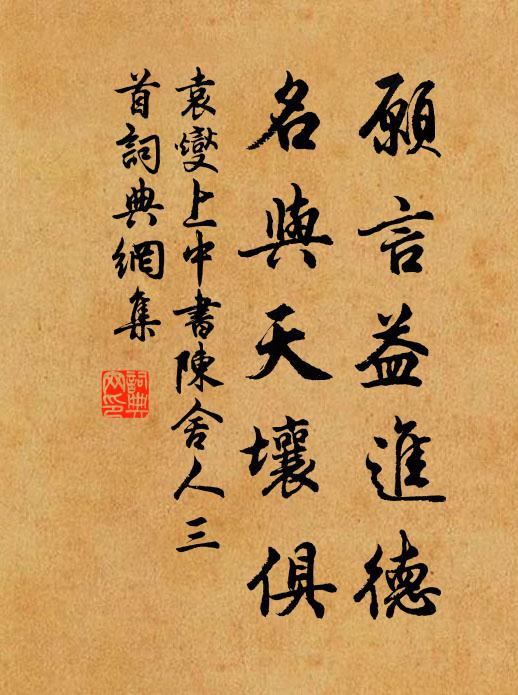 願言益進德
名與天壤俱
袁燮上中書陳舍人三
首詞典網集
詞典
网印